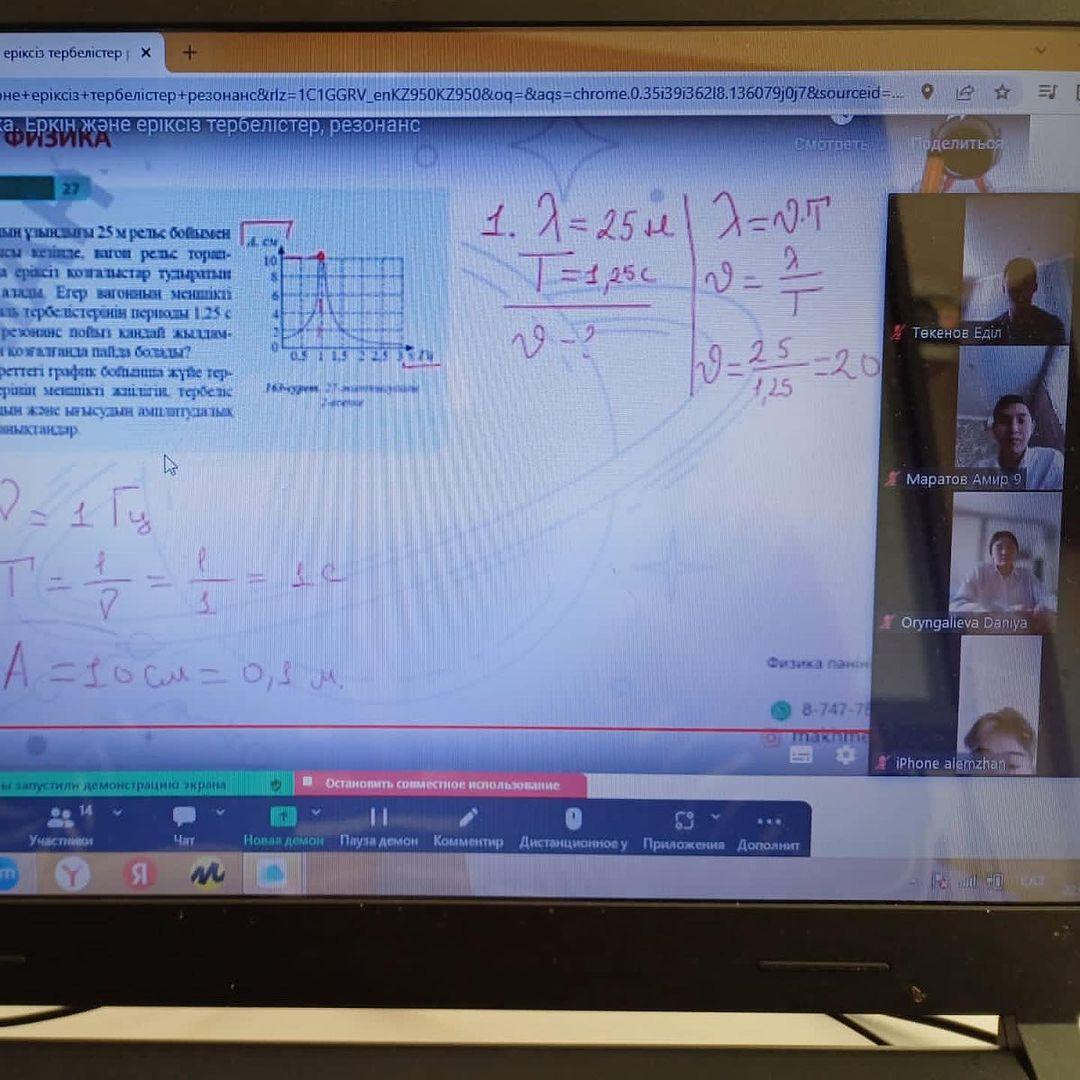 еріксіз тербелістер
не+еріксіз+тербелістер+резонанс&rlz=1C1GGRV_enKZ950KZ950&oq=&aqs=chrome.0.35i39i362l8.136079j0j7&sourceid=...
ка. Еркін және еріксіз тербелістер, резонанс
Смотреть
Поделиться
ФИЗИКА
27
ың ұзындығы 25 м рельс бойымен
кезінде, вагон рельс
еріксіз қозғалыстар тудыратын
алады. Егер вагонның меншікті
тербелістерінің периоды 1,25 с
резонанс пойыз қандай жылдам-
қозғалғанда пайда болады?
график бойынша жүйе тер-
меншікті жиілігін, тербеліс
және ығысудың амплитудалық
анықтаңдар.
A, см
10
8
6
4
2
0
0,5 1 1,5 2 2,5 3 ν, Гц
163-сурет. 27-жаттығудың
2-есебіне
1. λ = 25 м
T = 1,25 с
υ - ?
λ = υ·T
υ = λ/T
υ = 25/1,25 = 20
ν = 1 Гц
T = 1/ν = 1/1 = 1 с
A = 10 см = 0,1 м.
Төкенов Еділ
Маратов Амир 9
Oryngalieva Daniya
iPhone alemzhan
Физика пәнін
8-747-7
makhme
ы запустили демонстрацию экрана
Остановить совместное использование
14
Участники
Чат
Новая демон
Пауза демон
Комментир
Дистанционное у
Приложения
Дополнит
m
Y
Я